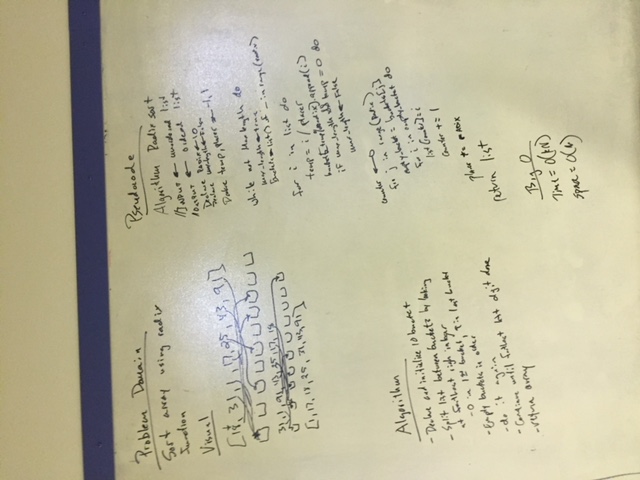 Problem Domain
Sort array using radix
function
Visual
[18, 31, 1, 17, 25, 43, 91]
31, 1, 91, 43, 25, 17, 18
[1, 17, 18, 25, 31, 43, 91]
Algorithm
- Declare and initialize 10 bucket
- Split list between buckets by looking
at furthest right integer
- 0 in 1st bucket, 9 in last bucket
- Empty buckets in order
- do it again
- Continue until furthest left digit done
- return array
Pseudocode
Algorithm Radix sort
//Input ← unordered list
//Output ← ordered list
Declare Radix ← 10
Declare max length ← False
Declare temp, placer ← -1, 1
while not Max length do
max_length ← true
Buckets ← list() for _ in range(radix)
for i in list do
temp = i / placer
buckets[temp % radix].append(i)
if max_length and temp > 0 do
max_length ← False
counter ← 0
for j in range(Radix)
empty_bucket = buckets[j]
for i in empty_bucket do
list[counter] = i
counter += 1
placer *= radix
return list
Big O
Time = O(kN)
space =